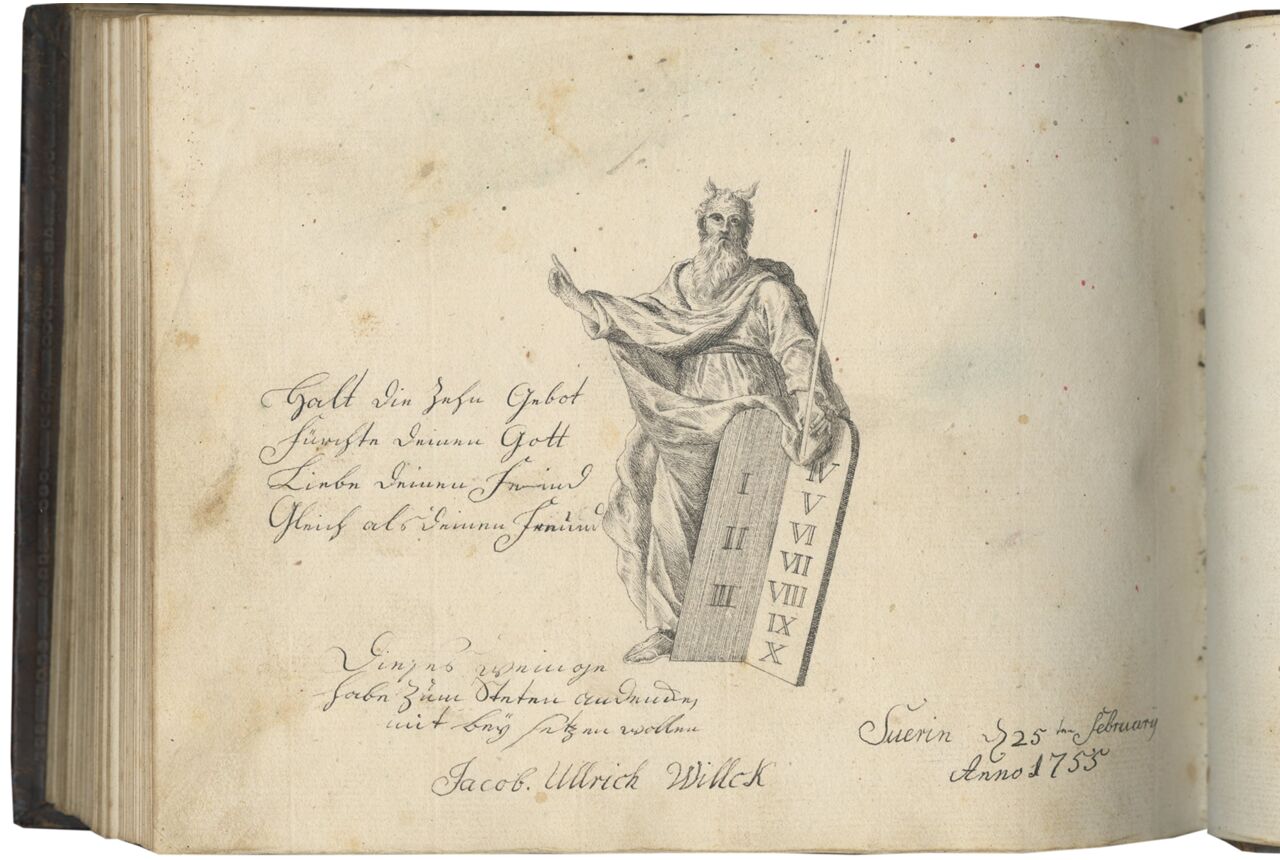 Halt die zehn Gebot
fürchte deinen Gott
Liebe deinen Feind
Gleich als deinen Freund
I
II
III
IV
V
VI
VII
VIII
IX
X
Dieses wenige
habe zum Steten
mit bey setzen wollen
Jacob. Ullrich Willck
Suerin d 25 ten February
Anno 1755